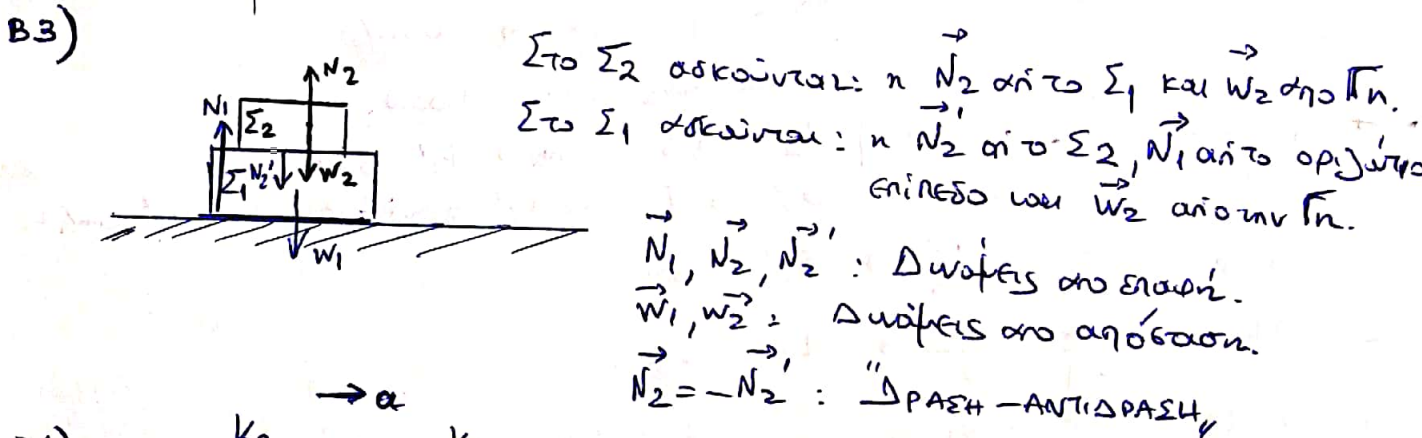 B3)
Στο Σ2 ασκούνται: η N⃗2 από το Σ1 και W⃗2 απο Γη.
Στο Σ1 ασκούνται: η N⃗2' από το Σ2, N⃗1 από το οριζόντιο
επίπεδο και W⃗2 από την Γη.
N2
N1
Σ2
Σ1 N2' W2
W1
N⃗1, N⃗2, N⃗2' : Δυνάμεις απο επαφή.
W⃗1, W⃗2 : Δυνάμεις απο απόσταση.
N⃗2 = -N⃗2' : "ΔΡΑΣΗ-ΑΝΤΙΔΡΑΣΗ"
→ a